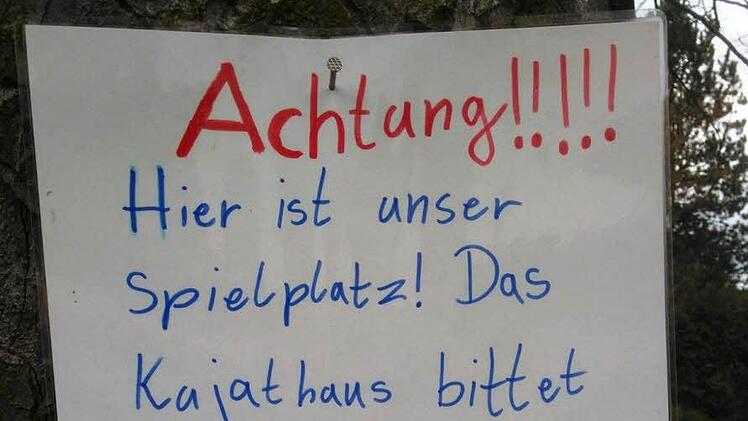 Achtung!!!!!
Hier ist unser
Spielplatz! Das
Kajathaus bittet